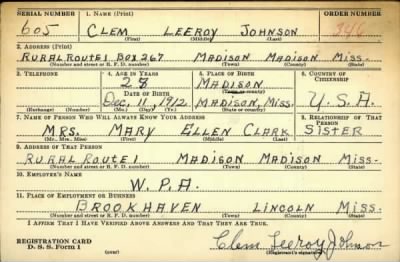 SERIAL NUMBER 1. NAME (Print) ORDER NUMBER
605 CLEM LEEROY JOHNSON 346
(First) (Middle) (Last)
2. ADDRESS (Print)
RURAL ROUTE 1 BOX 267 MADISON MADISON MISS.
(Number and street or R. F. D. number) (Town) (County) (State)
3. TELEPHONE 4. AGE IN YEARS 5. PLACE OF BIRTH 6. COUNTRY OF CITIZENSHIP
28 MADISON
DATE OF BIRTH (Town or county)
DEC. 11, 1912 MADISON, MISS. U.S.A.
(Exchange) (Number) (Mo.) (Day) (Yr.) (State or country)
7. NAME OF PERSON WHO WILL ALWAYS KNOW YOUR ADDRESS 8. RELATIONSHIP OF THAT PERSON
MRS. MARY ELLEN CLARK SISTER
(Mr., Mrs., Miss) (First) (Middle) (Last)
9. ADDRESS OF THAT PERSON
RURAL ROUTE 1 MADISON MADISON MISS.
(Number and street or R. F. D. number) (Town) (County) (State)
10. EMPLOYER'S NAME
W.P.A.
11. PLACE OF EMPLOYMENT OR BUSINESS
BROOKHAVEN LINCOLN MISS.
(Number and street or R. F. D. number) (Town) (County) (State)
I AFFIRM THAT I HAVE VERIFIED ABOVE ANSWERS AND THAT THEY ARE TRUE.
REGISTRATION CARD
D. S. S. Form 1 (over) Clem Leeroy Johnson
(Registrant's signature)